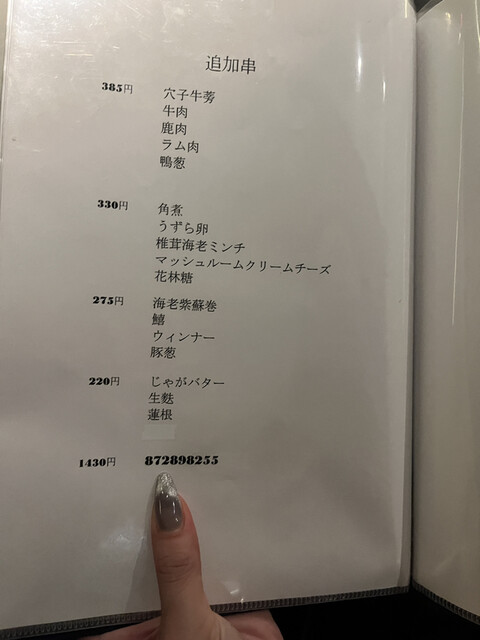 追加串
385円 穴子牛蒡
牛肉
鹿肉
ラム肉
鴨葱
330円 角煮
うずら卵
椎茸海老ミンチ
マッシュルームクリームチーズ
花林糖
275円 海老紫蘇巻
鱚
ウィンナー
豚葱
220円 じゃがバター
生麩
蓮根
1430円 872898255